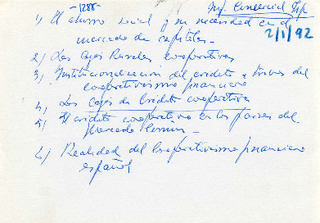 -1288-
Inf. Comercial Esp.
2/1/92
1) El ahorro social y su necesidad en el
mercado de capitales.
2) Las Cajas Rurales cooperativas
3) Institucionalización del crédito a través del
cooperativismo financiero
4) Las cajas de crédito cooperativo
5) El crédito cooperativo en los países del
Mercado Común -
6) Realidad del cooperativismo financiero
español